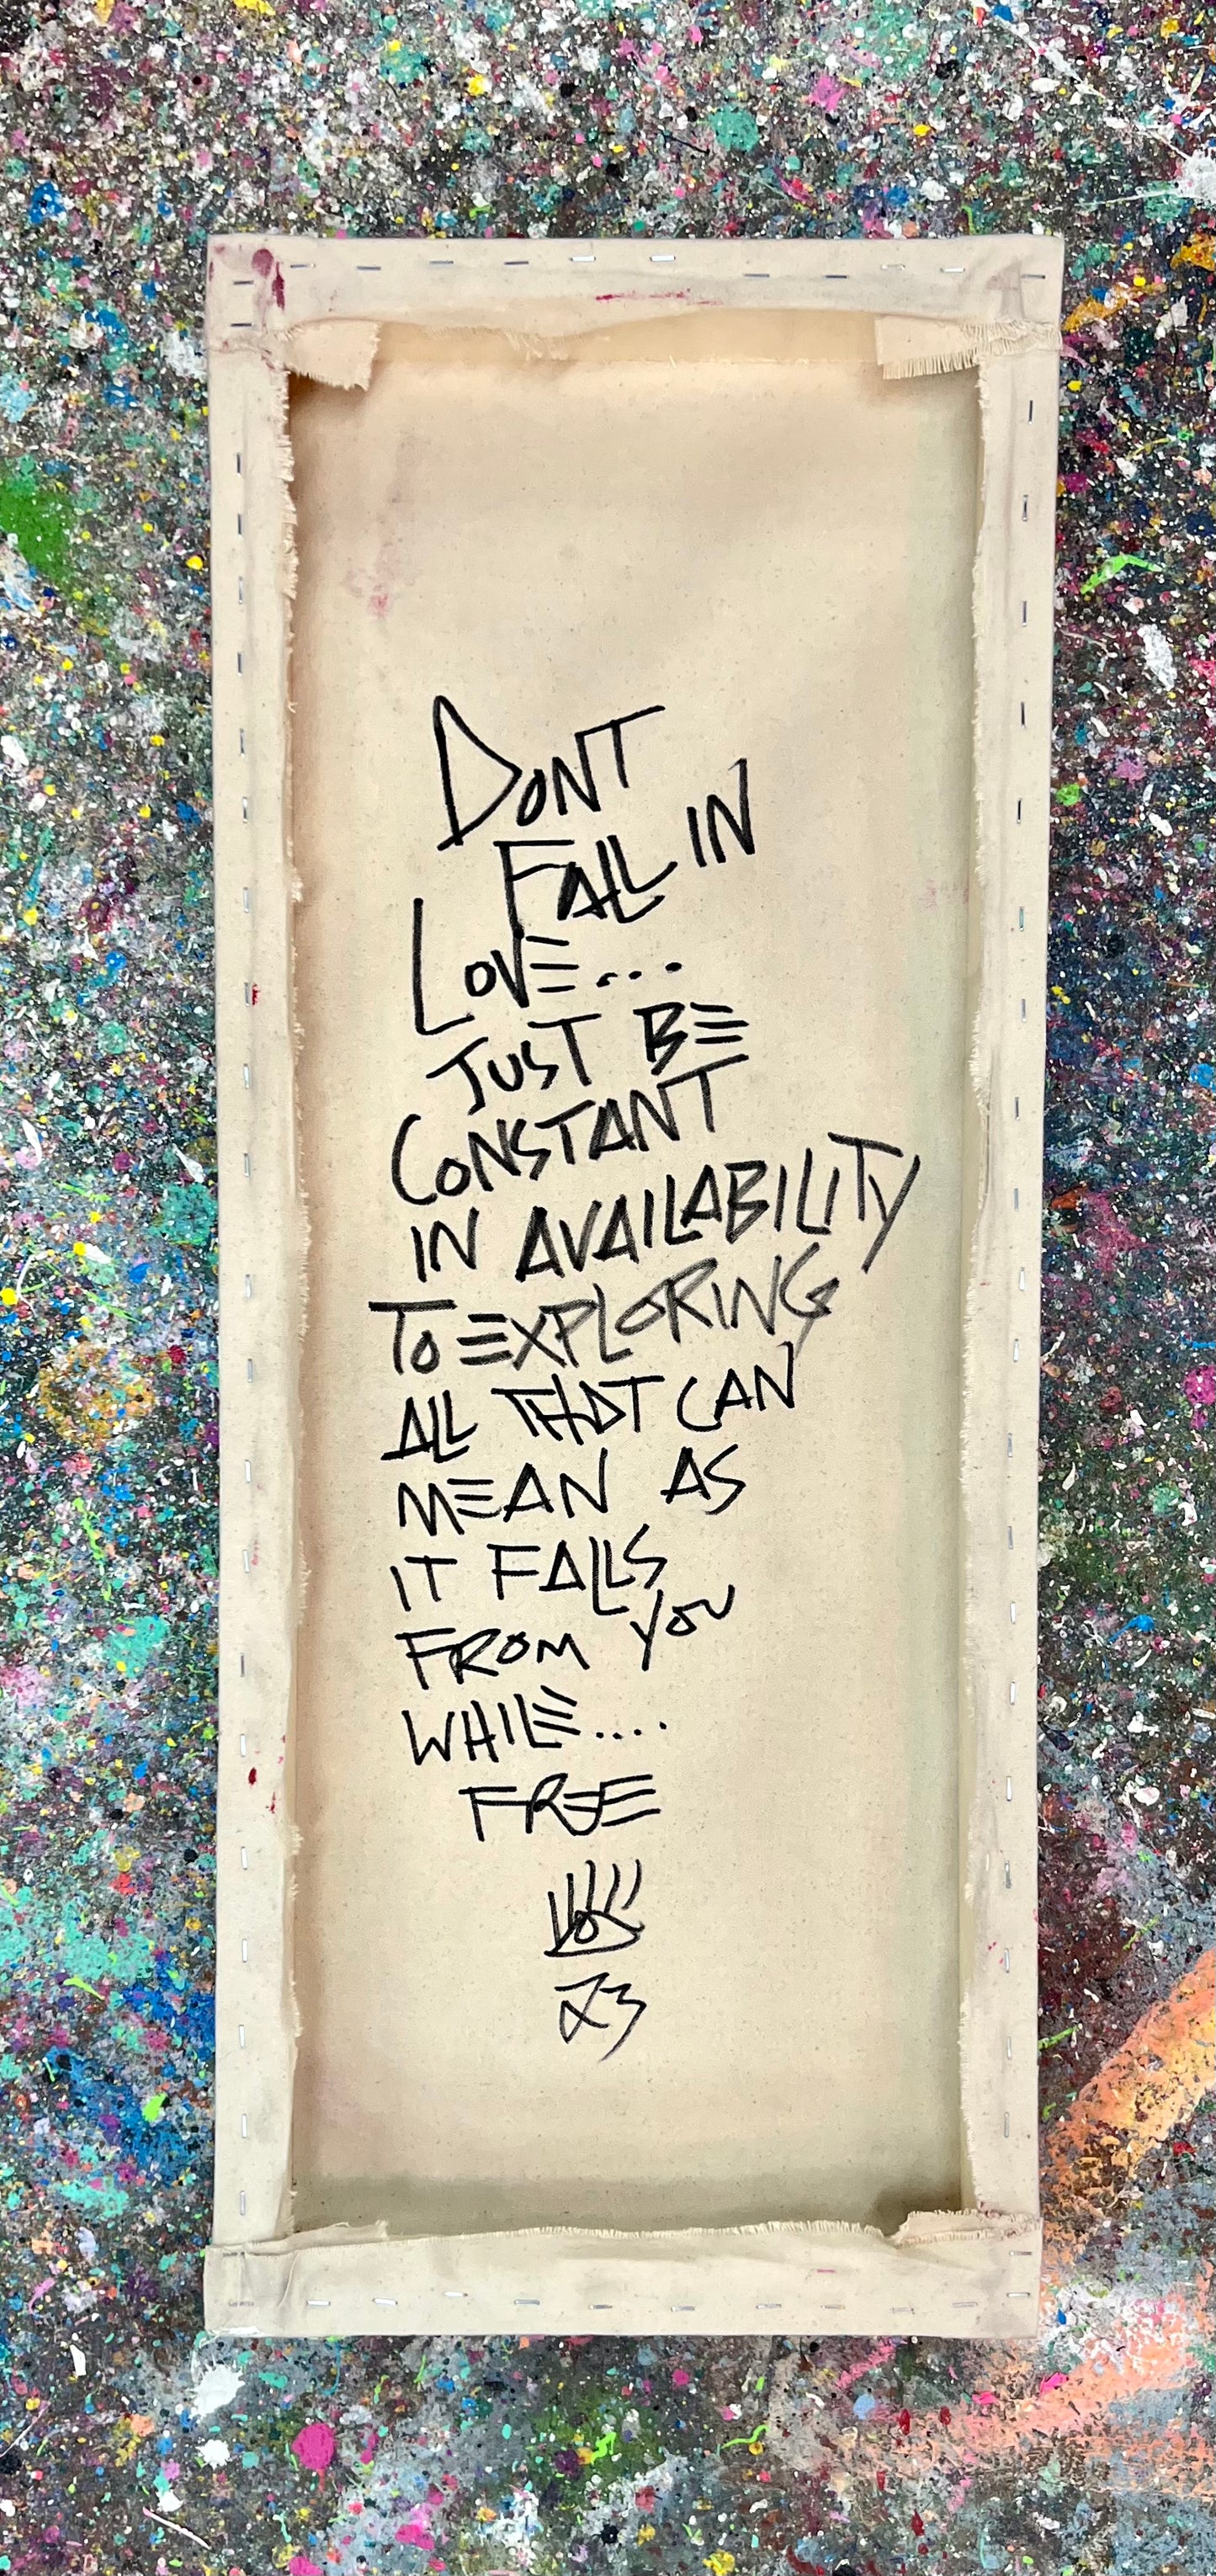 DONT
FALL IN
LOVE...
JUST BE
CONSTANT
IN AVAILABILITY
TO EXPLORING
ALL THAT CAN
MEAN AS
IT FALLS
FROM YOU
WHILE....
FREE
23